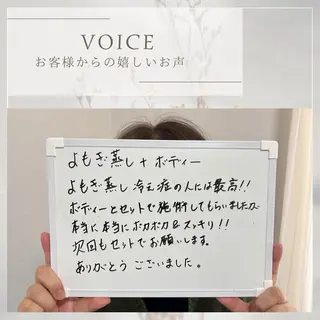 VOICE
お客様からの嬉しいお声
よもぎ蒸し + ボディー
よもぎ蒸し 冷え症の人には最高!!
ボディーとセットで施術してもらいましたが
本当に本当にポカポカ&スッキリ!!
次回もセットでお願いします。
ありがとう ございました。